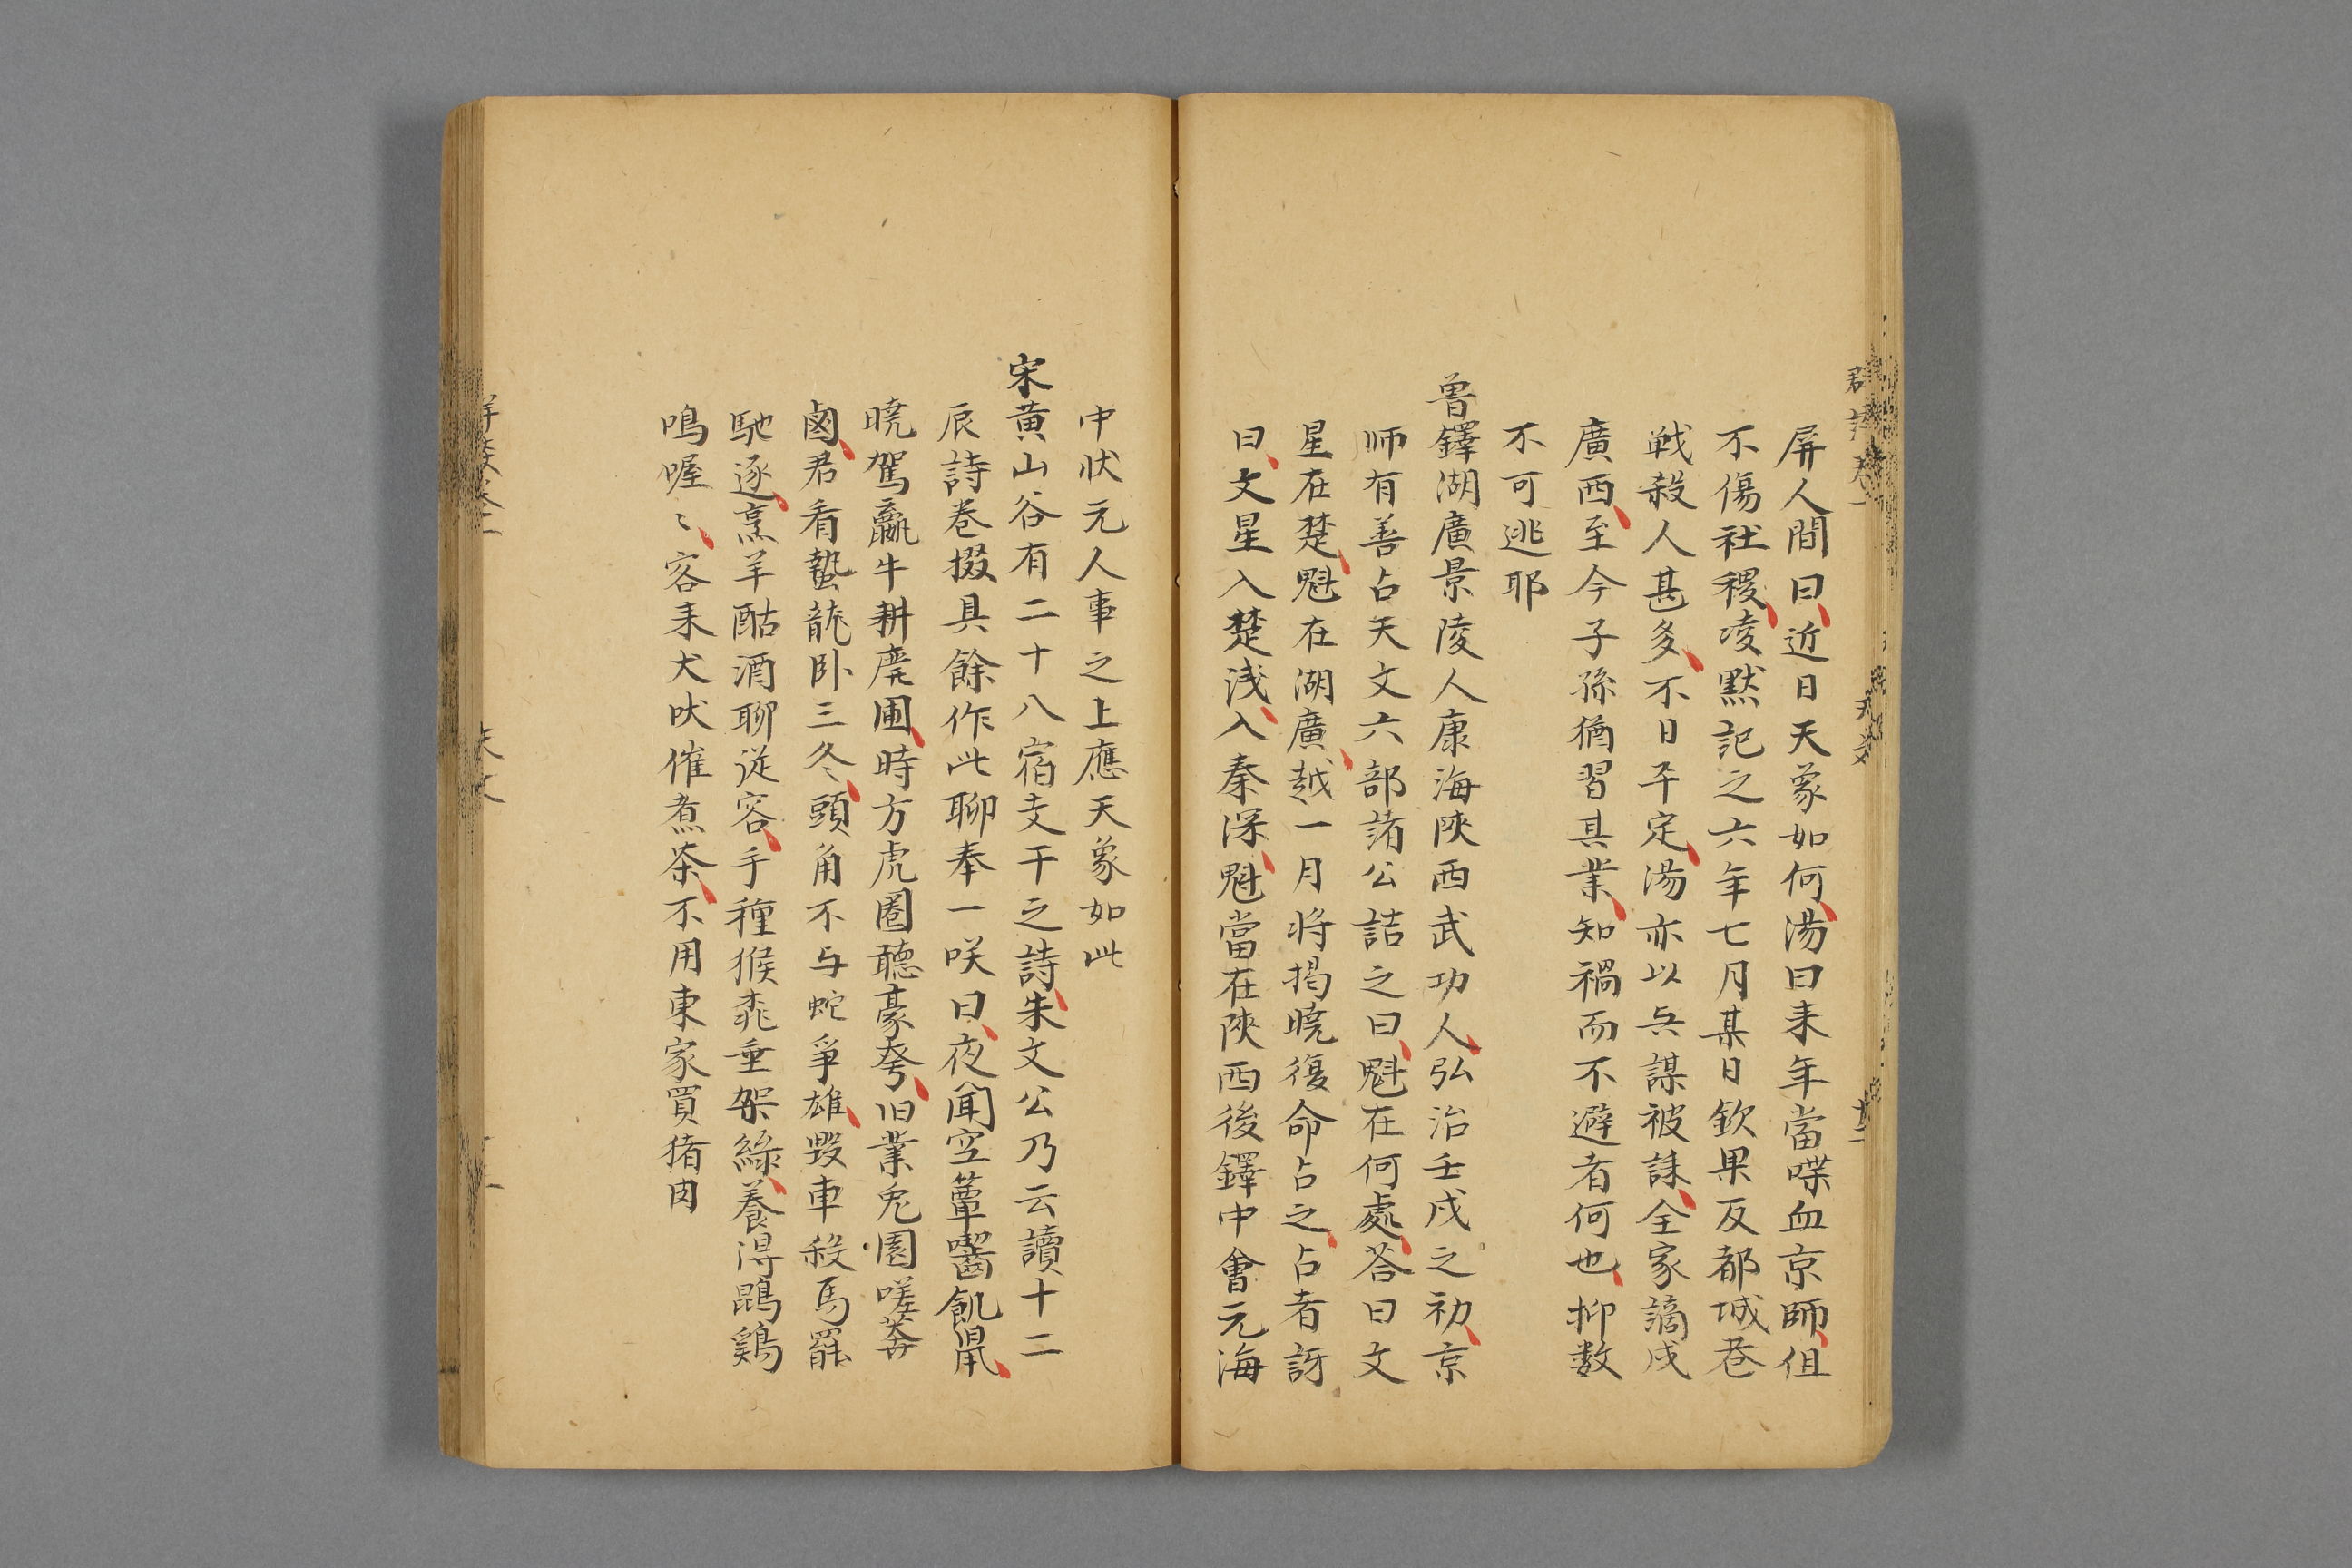 屏人間曰近日天象如何湯曰来年當喋血京師但
不傷社稷凌黙記之六年七月某日欽果反都城巷
戦殺人甚多不日平定湯亦以兵謀被誅全家謫戍
廣西至今子孫猶習其業知禍而不避者何也抑数
不可逃耶
曽鐸湖廣景陵人康海陝西武功人弘治壬戌之初京
师有善占天文六部諸公詰之曰魁在何處荅曰文
星在楚魁在湖廣越一月将揭曉復命占之占者訝
曰文星入楚浅入秦深魁當在陝西後鐸中會元海
中状元人事之上應天象如此
宋黄山谷有二十八宿支干之詩朱文公乃云讀十二
辰詩巻掇其餘作此聊奉一咲曰夜聞空簞齧飢鼠
曉駕羸牛耕廃圃時方虎圏聽豪夸旧業兎園嗟莽
鹵君看蟄龍卧三冬頭角不与蛇爭雄毀車殺馬罷
馳逐烹羊酤酒聊従容手種猴桃垂架緑養得鵾鷄
鳴喔〻客来犬吠催煮茶不用東家買猪肉
天文